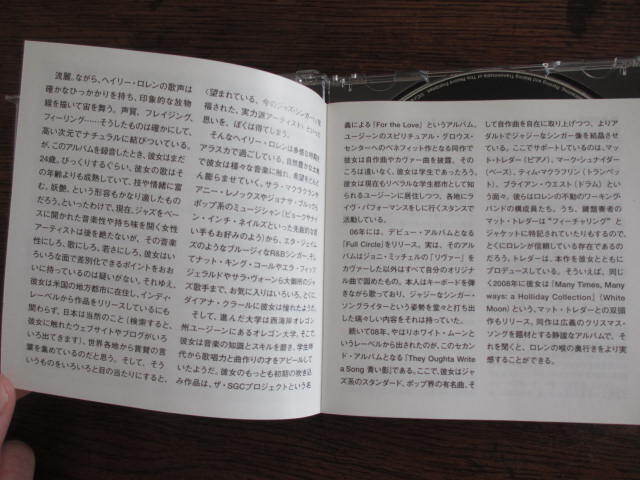 流麗。ながら、ヘイリー・ロレンの歌声は
確かなひっかかりを持ち、印象的な放物
線を描いて宙を舞う。声質、フレイジング、
フィーリング……そうしたものは確かにして、
高い次元でナチュラルに結びついている。
が、このアルバムを録音したとき、彼女はまだ
24歳。びっくりするぐらい、彼女の歌はそ
の年齢よりも成熟していて、技や情緒に富
む。妖艶、という形容もかなり適したものも
だろう。といったわけで、現在、ジャズをベー
スに開かれた音楽性や持ち味を開く女性
アーティストは後を絶たないが、その音楽
性にしろ、歌にしろ、若さにしろ、彼女はい
ろいろな面で差別化できるポイントをおお
いに持っているのは疑いがない。それゆえ、
彼女は米国の地方都市に在住し、インディ・
レーベルから作品をリリースしているにも
関わらず、日本は当然のこと(検索すると、
彼女に触れたウェブサイトやブログがいろ
いろ出てきます)、世界各地から賞賛の言
葉を集めているのだと思う。そして、そう
いうものをいろいろと目の当たりにすると、
(望まれている、今のジャズ・シンガー)、
福された、実力派アーティスト、といった
思いを、ぼくは得てしまう。
そんなヘイリー・ロレンは多感な時期を
アラスカで過ごしている。自然豊かな土地
で彼女は様々な音楽に触れ、希望をどんど
ん膨らませていく。サラ・マクラクランや
アニー・レノックスやジョナ・ブルックら
ポップ系のミュージシャン(ビョークやナイ
ン・インチ・ネイルズといった先鋭的な遣
い手もお好みのよう)から、エタ・ジェイム
ズのようなブルージィなR&Bシンガー、そし
てナット・キング・コールやエラ・フィッツ
ジェラルドやサラ・ヴォーンら大御所のジャ
ズ歌手まで、お気に入りはいろいろ。とくに
ダイアナ・クラールに彼女は憧れたようだ。
そして、進んだ大学は西海岸オレゴン
州ユージーンにあるオレゴン大学。そこで
彼女は音楽の知識とスキルを磨き、学生時
代から歌唱力と曲作りの才をアピールして
いたようだ。彼女のもっとも初期の吹き込
み作品は、ザ・SGCプロジェクトという名
義による『For the Love』というアルバム。
ユージーンのスピリチュアル・グロウス・
センターへのベネフィット作となる同作で
彼女は自作曲やカヴァー曲を披露。その
ころは違いなく、彼女は学生であったろう。
彼女は現在もリベラルな学生都市として知
られるユージーンに居住しつつ、各地にラ
イヴ・パフォーマンスをしに行くスタンスで
活動している。
06年には、デビュー・アルバムとなる
『Full Circle』をリリース。実は、そのアル
バムはジョニ・ミッチェルの「リヴァー」を
カヴァーした以外はすべて自分のオリジナ
ル曲で固めたもの。本人はキーボードを弾
きながら歌っており、ジャジーなシンガー・
ソングライターという姿勢を堂々と打ち出
した瑞々しい内容をそれは持っていた。
続いて08年、やはりホワイト・ムーンと
いうレーベルから出されたのが、このセカン
ド・アルバムとなる『They Oughta Write
a Song 青い影』である。ここで、彼女はジャ
ズ系のスタンダード、ポップ界の有名曲、そ
して自作曲を自在に取り上げつつ、よりア
ダルトでジャジーなシンガー像を結晶させ
ている。ここでサポートしているのは、マッ
ト・トレダー(ピアノ)、マーク・シュナイダー
(ベース)、ティム・マクラフリン(トランペッ
ト)、ブライアン・ウエスト(ドラム)とい
う面々。彼らはロレンの不動のワーキング・
バンドの構成員たち。うち、鍵盤奏者の
マット・トレダーは“フィーチャリング”と
ジャケットに特記されていたりもするので、
とくにロレンが信頼している存在であるの
だろう。トレダーは、本作を彼女とともに
プロデュースしている。そういえば、同じ
く2008年に彼女は『Many Times, Many
ways: a Holliday Collection』(White
Moon)という、マット・トレダーとの双頭
作もリリース。同作は広義のクリスマス・
ソングを題材とする静謐なアルバムで、そ
れを聞くと、ロレンの喉の奥行きをより実
感することができる。